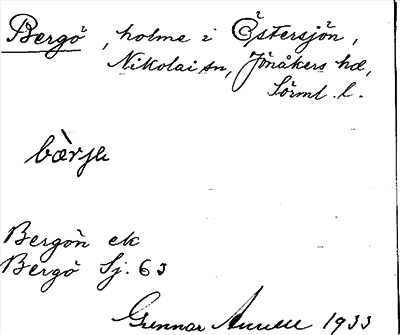 Bergö, holme i Östersjön,
Nikolai sn, Jönåkers hd,
Sörml. l.
bàrje
Bergön ek
Bergö Sj. 63
Gunnar 1933